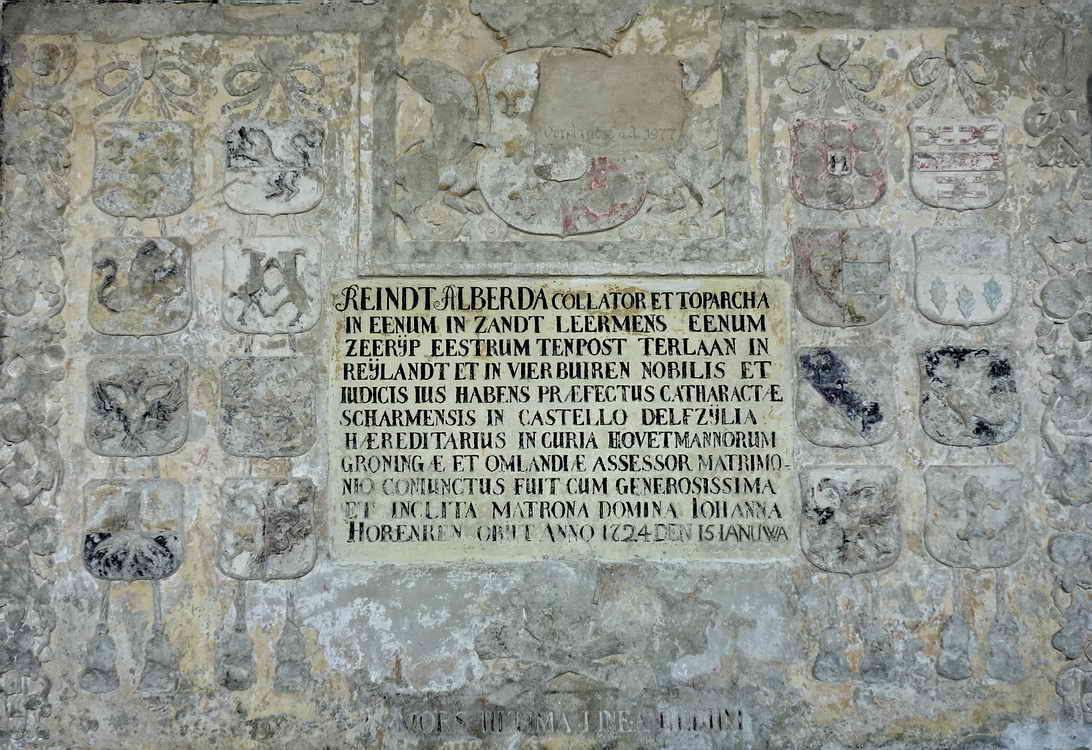 Vernieuwd 1977
REINDT ALBERDA COLLATOR ET TOPARCHA
IN EENUM IN ZANDT LEERMENS EENUM
ZEERIJP EESTRUM TENPOST TERLAAN IN
REIJLANDT ET IN VIERBUIREN NOBILIS ET
IUDICIS IUS HABENS PRÆFECTUS CATHARACTÆ
SCHARMENSIS IN CASTELLO DELFZIJLIA
HÆREDITARIUS IN CURIA HOVETMANNORUM
GRONINGÆ ET OMLANDIÆ ASSESSOR MATRIMO-
NIO CONIUNCTUS FUIT CUM GENEROSISSIMA
ET INCLITA MATRONA DOMINA IOHANNA
HORENKEN OBIIT ANNO 1724 DEN 15 IANUWA
MORS ULTIMA LINEA RERUM